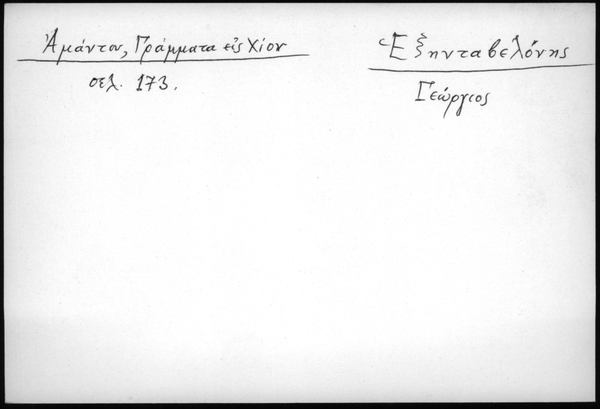 Ἀμάντου, Γράμματα εἰς Χίον
σελ. 173.
Ἑξηνταβελόνης
Γεώργιος